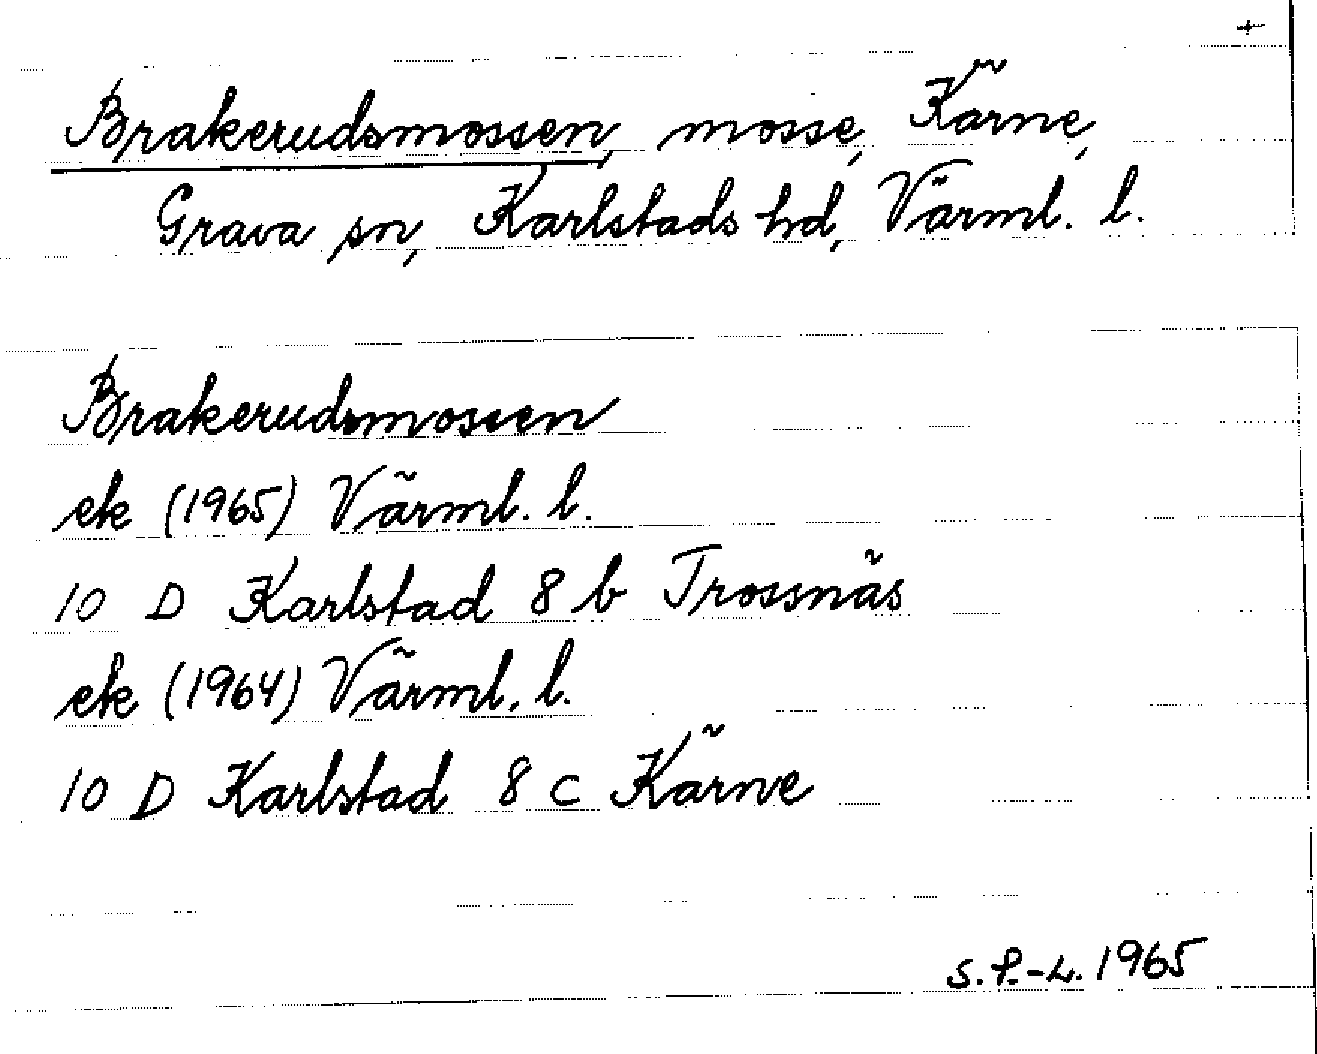 +
Brakerudsmossen, mosse, Kärne,
Grava sn, Karlstads hd, Värml. l.
Brakerudsmossen
ek (1965) Värml. l.
10 D Karlstad 8 b Trossnäs
ek (1964) Värml. l.
10 D Karlstad 8 c Kärne
S.P.-L. 1965